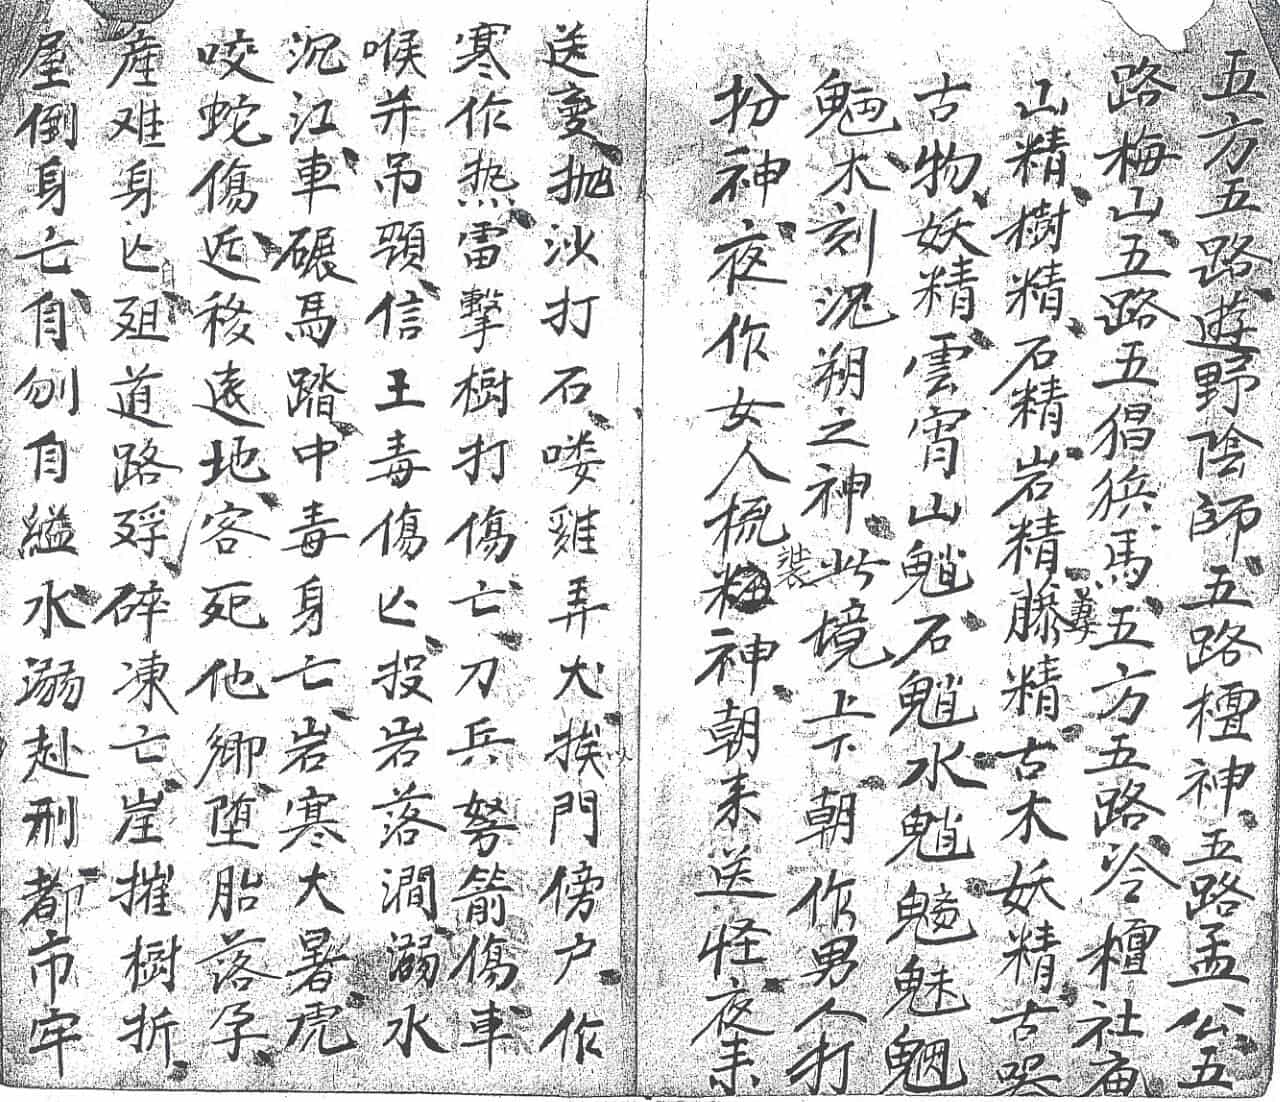 五方五路遊野陰師五路檀神五路孟公五
路梅山五路五猖兵馬五方五路冷檀社庙
山精樹精石精岩精藤精古木妖精古器
古物妖精雲霄山魈石魈水魈魑魅魍
魎木刻泥朔之神此境上下朝作男人打
扮神夜作女人梳裝神朝来送怪夜来
送变抛沙打石喽雞弄犬挨門傍户作
寒作热雷擊樹打傷亡刀兵弩箭傷車
喉并吊頸信王毒傷亡投岩落澗溺水
沉江車碾馬踏中毒身亡岩寒大暑虎
咬蛇傷近移遠地客死他卿堕胎落孕
産难身亡自殂道路殍碎凍亡崖摧樹折
屋倒身亡自刎自縊水溺赴刑都市牢